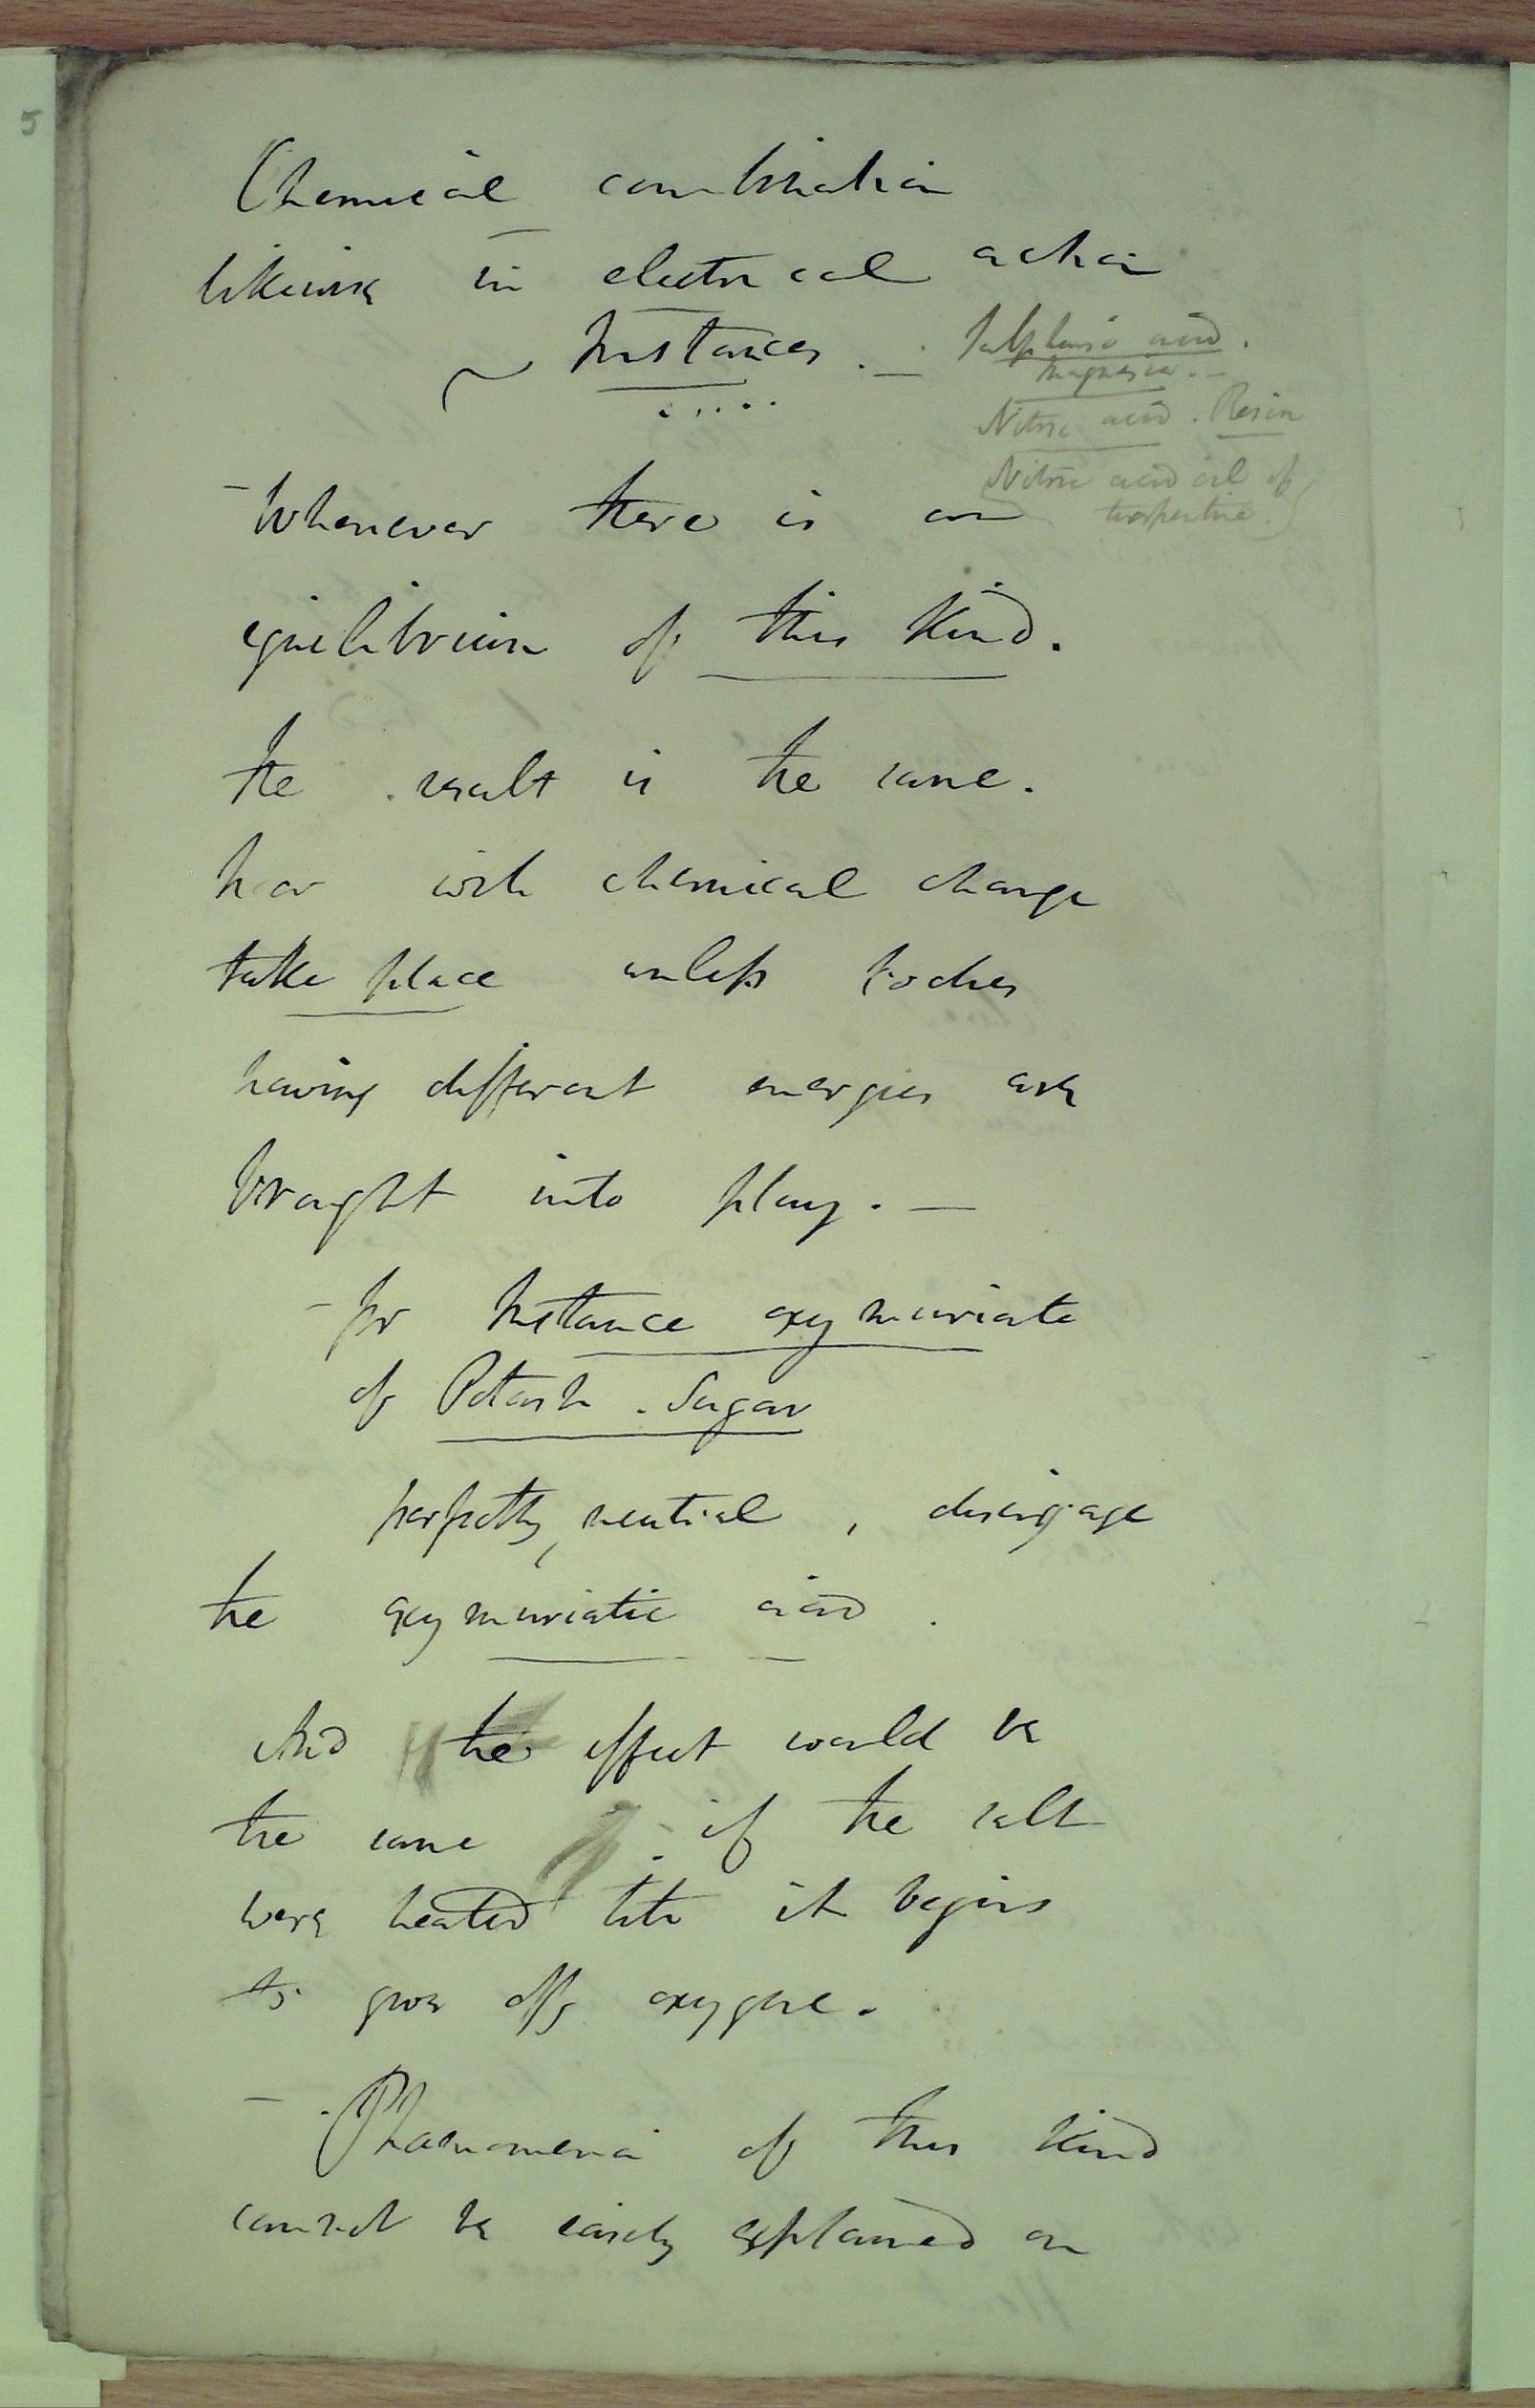 5
Chemical combination
likewise in electrical action
~ Instances. — Sulphuric acid.
magnesia. —
Nitric acid. Resin
Nitric acid oil of
turpentine.
- Whenever there is an
equilibrium of this Kind.
the result is the same.
nor will chemical change
take place unless bodies
having different energies are
brought into play. —
- for Instance oxymuriate
of Potash. Sugar
perfectly neutral, disengage
the oxymuriatic acid.
And the effect would be
the same if the salt
were heated till it begins
to give off oxygene.
- Phaenomena of this Kind
cannot be easily explained on